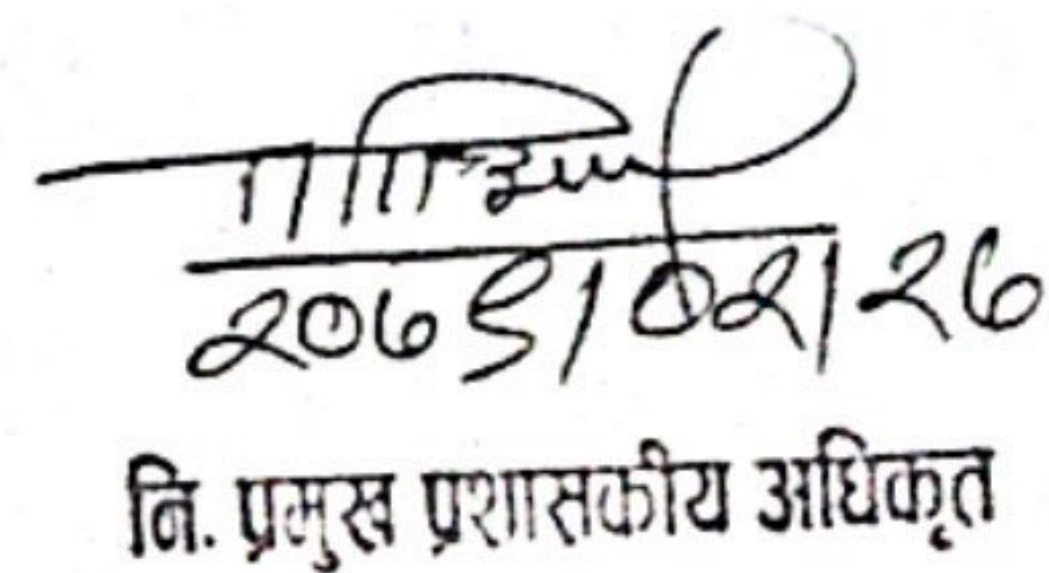 २०७९/०२/२७
नि. प्रमुख प्रशासकीय अधिकृत